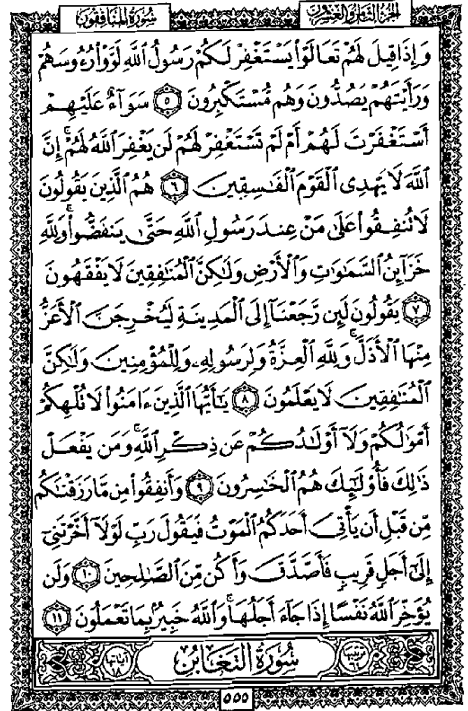 الجزء الثامن والعشرون
سورة المنافقون
وَإِذَا قِيلَ لَهُمْ تَعَالَوْا۟ يَسْتَغْفِرْ لَكُمْ رَسُولُ ٱللَّهِ لَوَّوْا۟ رُءُوسَهُمْ
وَرَأَيْتَهُمْ يَصُدُّونَ وَهُم مُّسْتَكْبِرُونَ ٥ سَوَآءٌ عَلَيْهِمْ
أَسْتَغْفَرْتَ لَهُمْ أَمْ لَمْ تَسْتَغْفِرْ لَهُمْ لَن يَغْفِرَ ٱللَّهُ لَهُمْ ۚ إِنَّ
ٱللَّهَ لَا يَهْدِى ٱلْقَوْمَ ٱلْفَـٰسِقِينَ ٦ هُمُ ٱلَّذِينَ يَقُولُونَ
لَا تُنفِقُوا۟ عَلَىٰ مَنْ عِندَ رَسُولِ ٱللَّهِ حَتَّىٰ يَنفَضُّوا۟ ۗ وَلِلَّهِ
خَزَآئِنُ ٱلسَّمَـٰوَٰتِ وَٱلْأَرْضِ وَلَـٰكِنَّ ٱلْمُنَـٰفِقِينَ لَا يَفْقَهُونَ
٧ يَقُولُونَ لَئِن رَّجَعْنَآ إِلَى ٱلْمَدِينَةِ لَيُخْرِجَنَّ ٱلْأَعَزُّ
مِنْهَا ٱلْأَذَلَّ ۚ وَلِلَّهِ ٱلْعِزَّةُ وَلِرَسُولِهِۦ وَلِلْمُؤْمِنِينَ وَلَـٰكِنَّ
ٱلْمُنَـٰفِقِينَ لَا يَعْلَمُونَ ٨ يَـٰٓأَيُّهَا ٱلَّذِينَ ءَامَنُوا۟ لَا تُلْهِكُمْ
أَمْوَٰلُكُمْ وَلَآ أَوْلَـٰدُكُمْ عَن ذِكْرِ ٱللَّهِ ۚ وَمَن يَفْعَلْ
ذَٰلِكَ فَأُو۟لَـٰٓئِكَ هُمُ ٱلْخَـٰسِرُونَ ٩ وَأَنفِقُوا۟ مِن مَّا رَزَقْنَـٰكُم
مِّن قَبْلِ أَن يَأْتِىَ أَحَدَكُمُ ٱلْمَوْتُ فَيَقُولَ رَبِّ لَوْلَآ أَخَّرْتَنِىٓ
إِلَىٰٓ أَجَلٍ قَرِيبٍ فَأَصَّدَّقَ وَأَكُن مِّنَ ٱلصَّـٰلِحِينَ ١٠ وَلَن
يُؤَخِّرَ ٱللَّهُ نَفْسًا إِذَا جَآءَ أَجَلُهَا ۚ وَٱللَّهُ خَبِيرٌۢ بِمَا تَعْمَلُونَ ١١
سُورَةُ التَّغَابُنِ
آياتها ١٨
٥٥٥